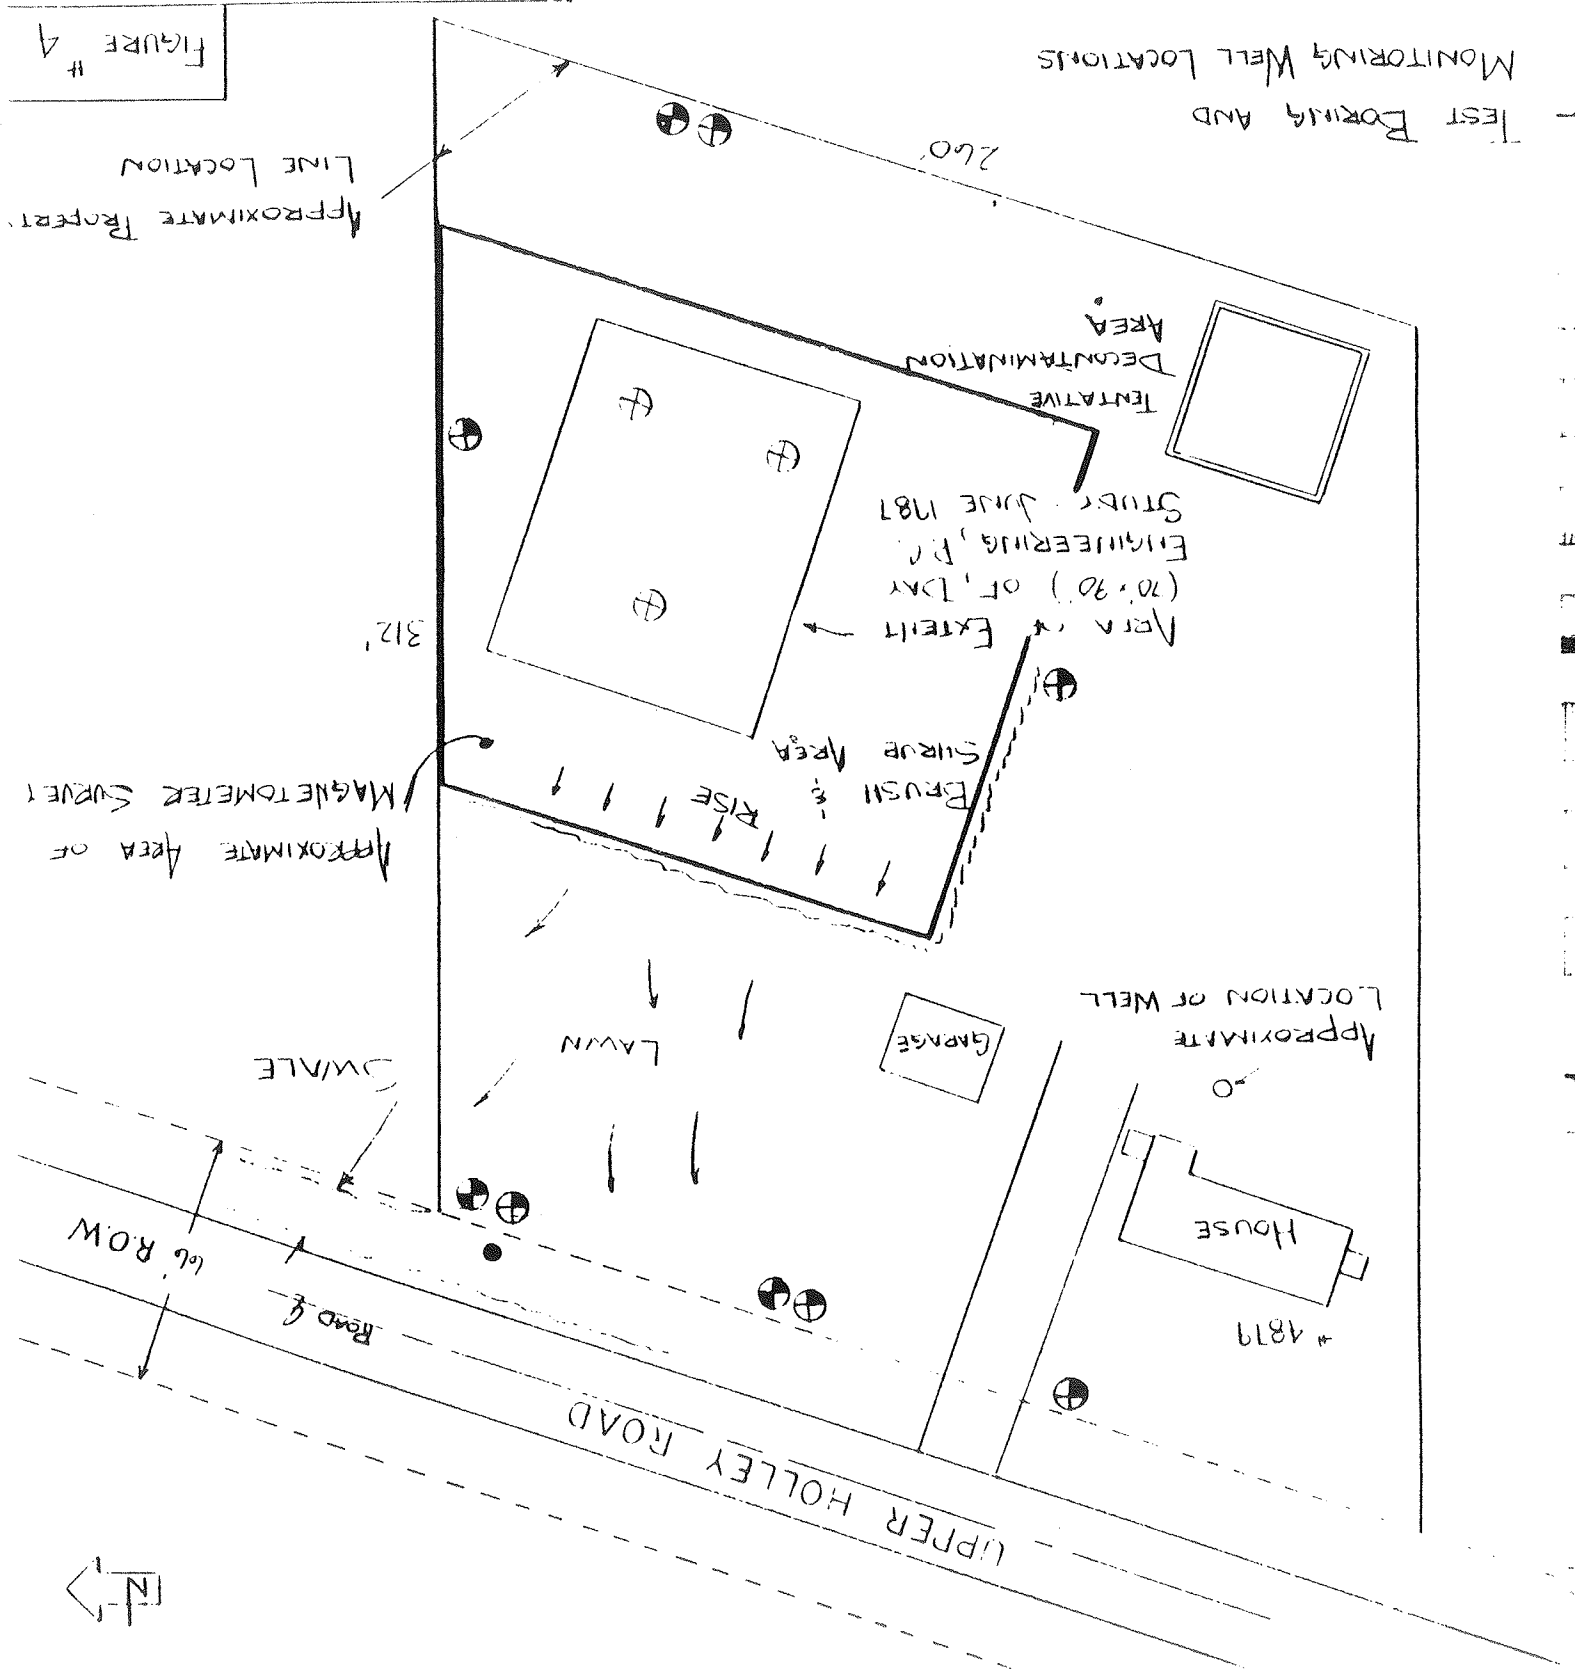 N
UPPER HOLLEY ROAD
ROAD ℄
66' ROW
HOUSE
SWALE
APPROXIMATE
LOCATION OF WELL
GARAGE
LAWN
APPROXIMATE AREA OF
MAGNETOMETER SURVEY
BRUSH &
SHRUB AREA
RISE
312'
EXTENT
OF DAY
ENGINEERING, P.C.
STUDY JUNE 1987
TENTATIVE
DECONTAMINATION
AREA
260'
APPROXIMATE PROPERT
LINE LOCATION
TEST BORING AND
MONITORING WELL LOCATIONS
FIGURE # 4